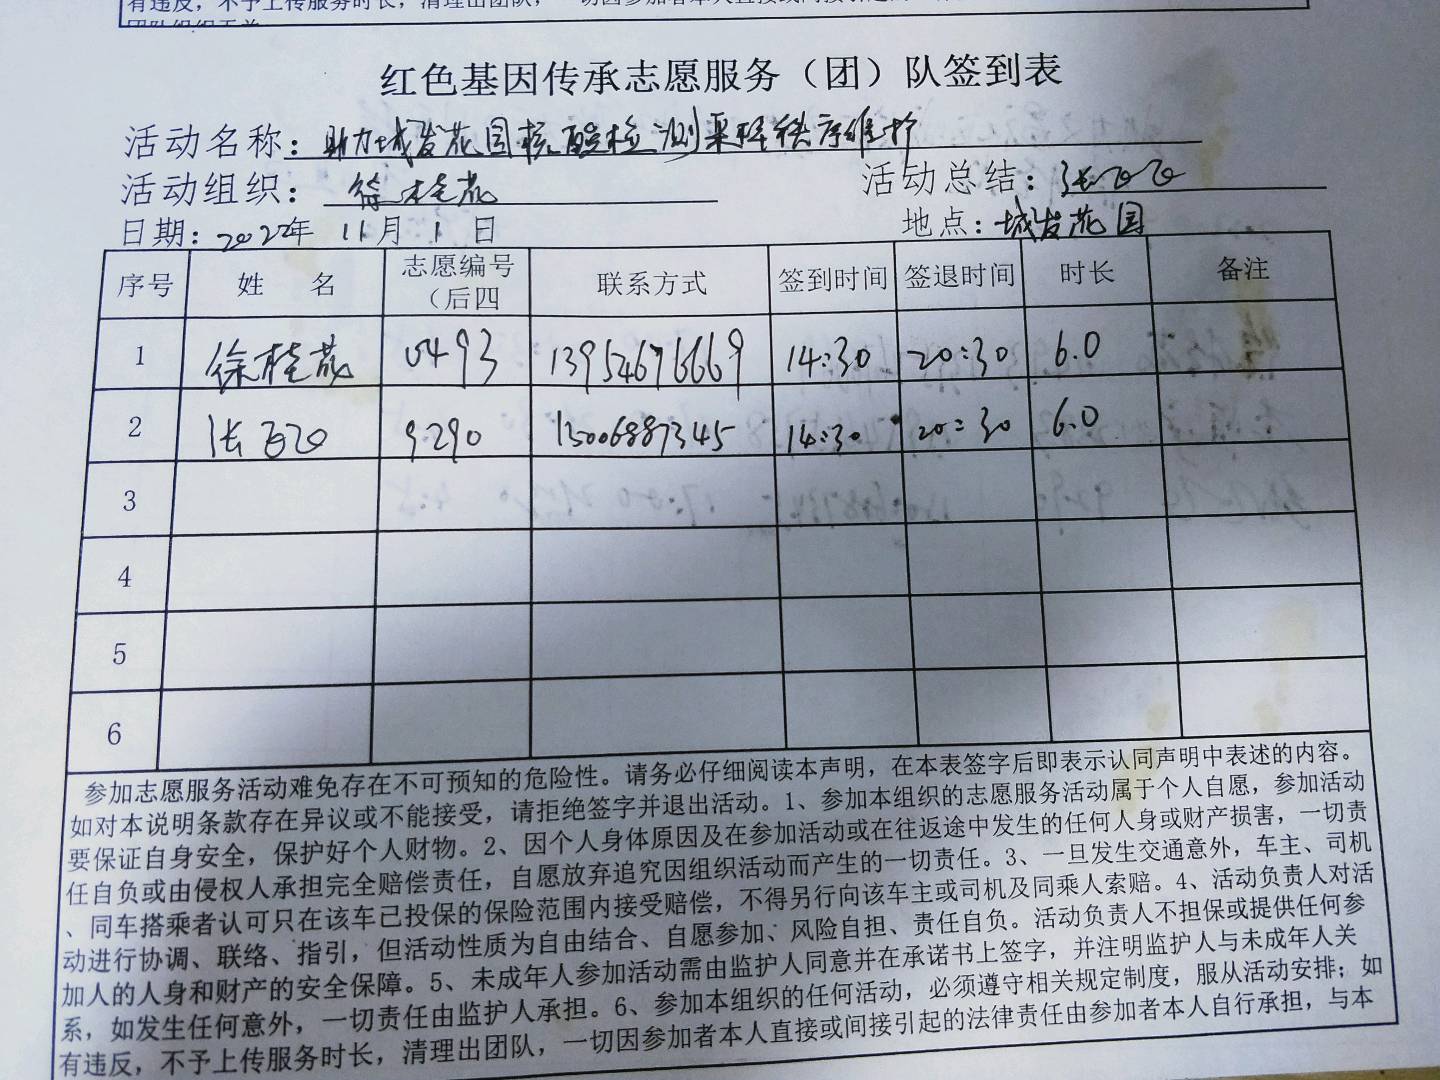 有违反，不予上传服务时长，清理出团队，一切因参加者本人直接或间接引起的
红色基因传承志愿服务（团）队签到表
活动名称：助力城发花园核酸检测采样秩序维护
活动组织：徐桂花 活动总结：张飞飞
日期：2022年 11月 1 日 地点：城发花园
序号 姓 名 志愿编号（后四 联系方式 签到时间 签退时间 时长 备注
1 徐桂花 0493 13954676669 14:30 20:30 6.0
2 张飞飞 9290 15006887345 14:30 20:30 6.0
3
4
5
6
参加志愿服务活动难免存在不可预知的危险性。请务必仔细阅读本声明，在本表签字后即表示认同声明中表述的内容。
如对本说明条款存在异议或不能接受，请拒绝签字并退出活动。1、参加本组织的志愿服务活动属于个人自愿，参加活动
要保证自身安全，保护好个人财物。2、因个人身体原因及在参加活动或在往返途中发生的任何人身或财产损害，一切责
任自负或由侵权人承担完全赔偿责任，自愿放弃追究因组织活动而产生的一切责任。3、一旦发生交通意外，车主、司机
、同车搭乘者认可只在该车已投保的保险范围内接受赔偿，不得另行向该车主或司机及同乘人索赔。4、活动负责人对活
动进行协调、联络、指引，但活动性质为自由结合、自愿参加、风险自担、责任自负。活动负责人不担保或提供任何参
加人的人身和财产的安全保障。5、未成年人参加活动需由监护人同意并在承诺书上签字，并注明监护人与未成年人关
系，如发生任何意外，一切责任由监护人承担。6、参加本组织的任何活动，必须遵守相关规定制度，服从活动安排；如
有违反，不予上传服务时长，清理出团队，一切因参加者本人直接或间接引起的法律责任由参加者本人自行承担，与本